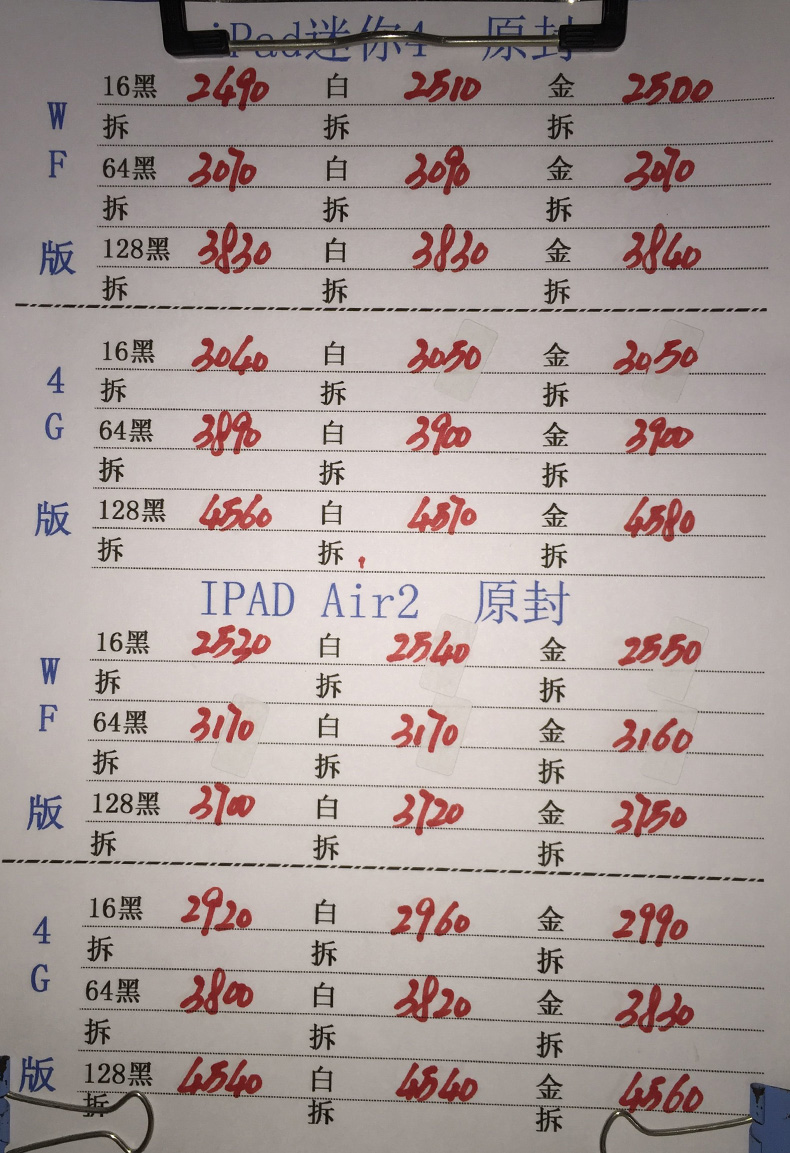 iPad迷你4 原封
WF版
16黑 2490 白 2510 金 2500
拆 拆 拆
64黑 3070 白 3090 金 3070
拆 拆 拆
128黑 3830 白 3830 金 3840
拆 拆 拆
4G版
16黑 3040 白 3050 金 3050
拆 拆 拆
64黑 3890 白 3900 金 3900
拆 拆 拆
128黑 4560 白 4570 金 4580
拆 拆 拆
IPAD Air2 原封
WF版
16黑 2530 白 2540 金 2550
拆 拆 拆
64黑 3170 白 3170 金 3160
拆 拆 拆
128黑 3700 白 3720 金 3750
拆 拆 拆
4G版
16黑 2920 白 2960 金 2990
拆 拆 拆
64黑 3800 白 3820 金 3830
拆 拆 拆
128黑 4540 白 4540 金 4560
拆 拆 拆